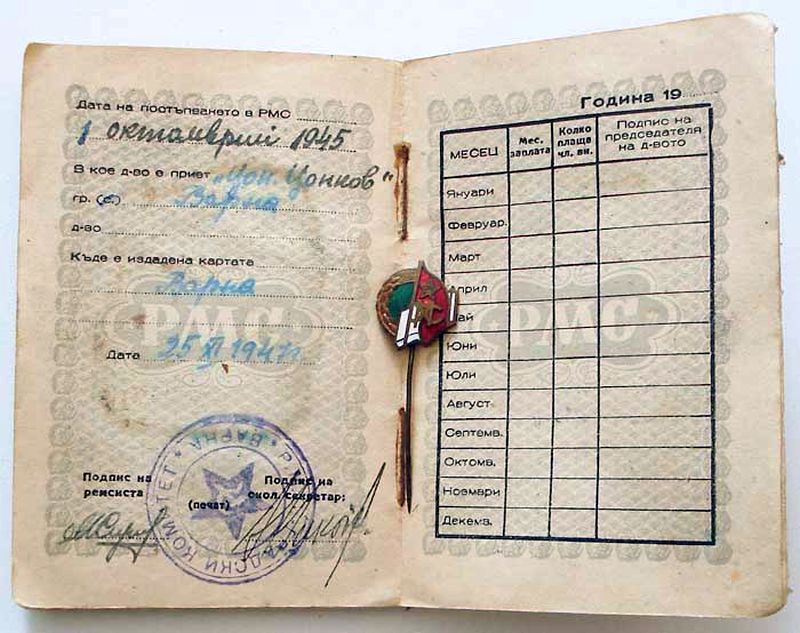 Дата на постъпването в РМС
1 октомврий 1945
В кое д-во е приет „Цон. Цонков“
гр. (с.) Варна
д-во
Къде е издадена картата
Варна
РМС
Дата 25 XI 1947
Подпис на
ремсиста
(печат)
Подпис на
окол. секретар:
ВАРНА
ДСКИ КОМИТЕТ
Година 19
МЕСЕЦ
Мес. заплата
Колко плаща чл. вн.
Подпис на председателя на д-вото
Януари
Февруар.
Март
Април
Май
РМС
Юни
Юли
Август
Септемв.
Октомв.
Ноември
Декемв.